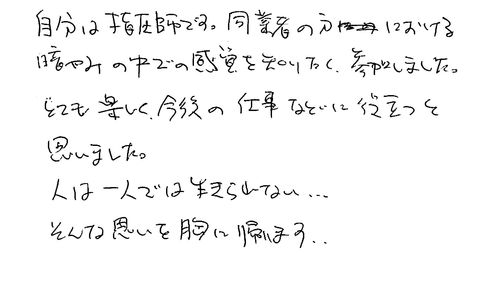 自分は指圧師です。同業者の方における
暗やみの中での感覚を知りたく、参加しました。
とても楽しく、今後の仕事などに役立つと
思いました。
人は一人では生きられない…
そんな思いを胸に帰ります..